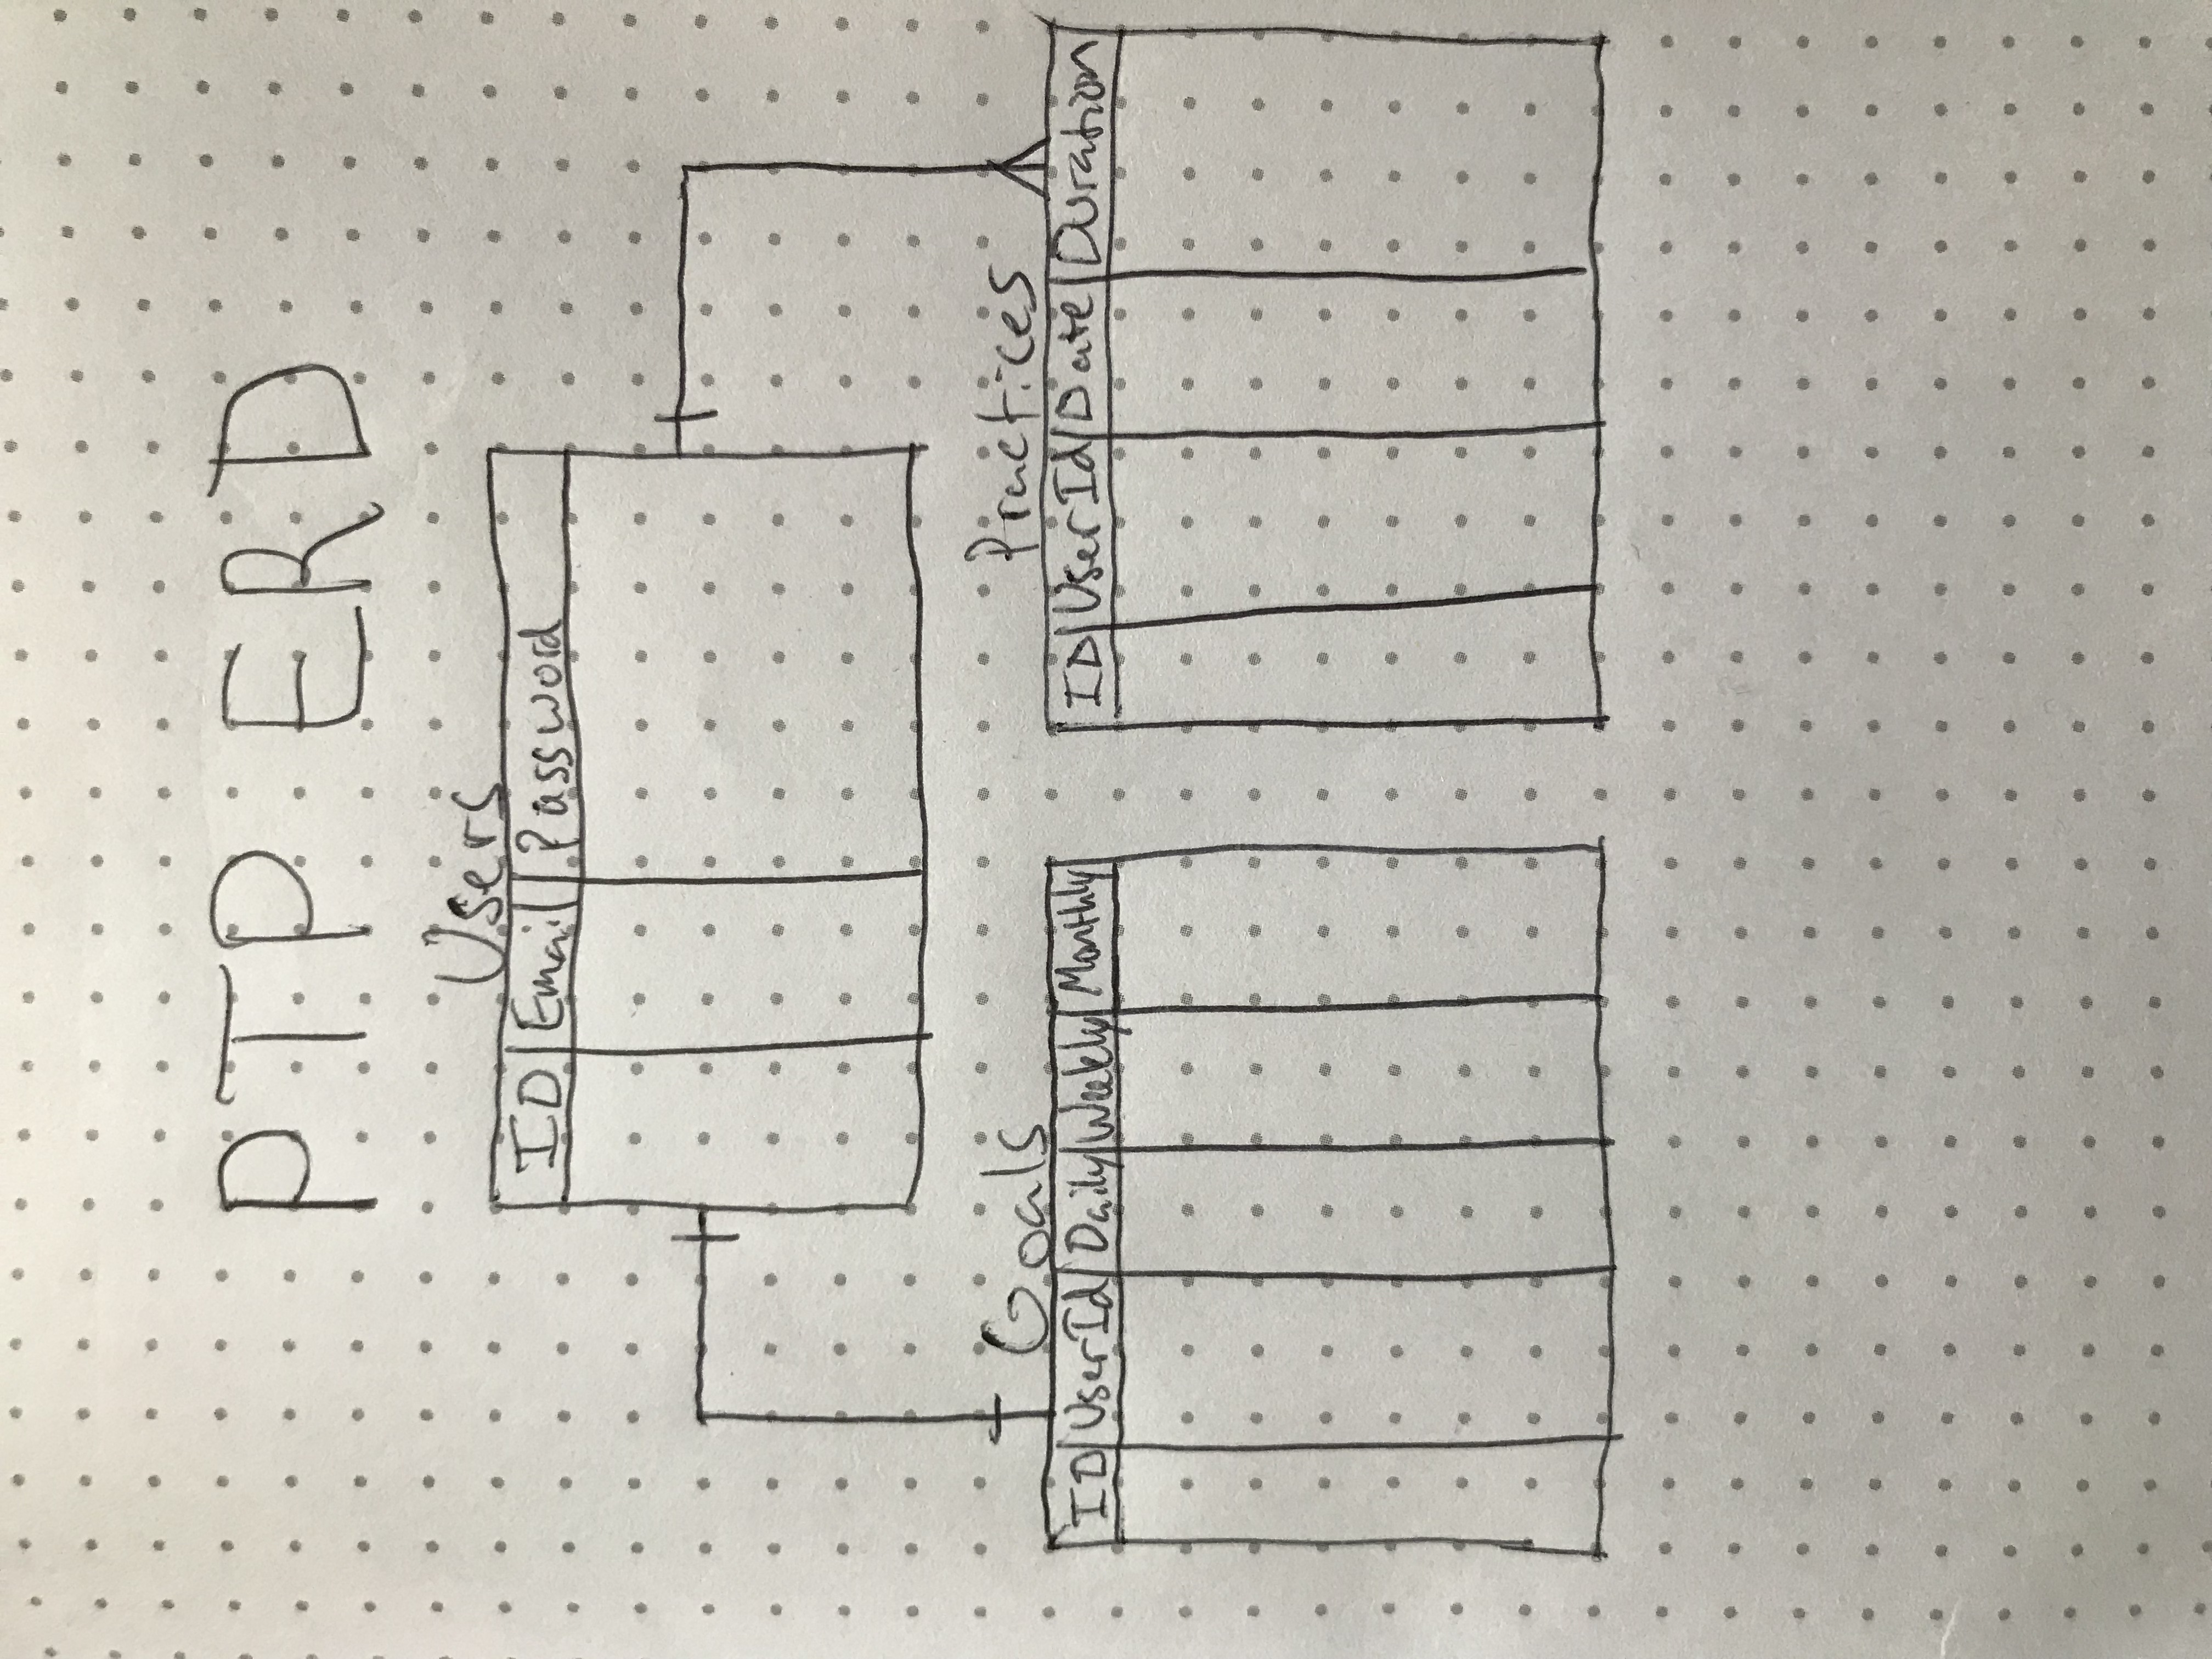 PTP ERD
Users
ID Email Password
Goals
ID UserId Daily Weekly Monthly
Practices
ID UserId Date Duration